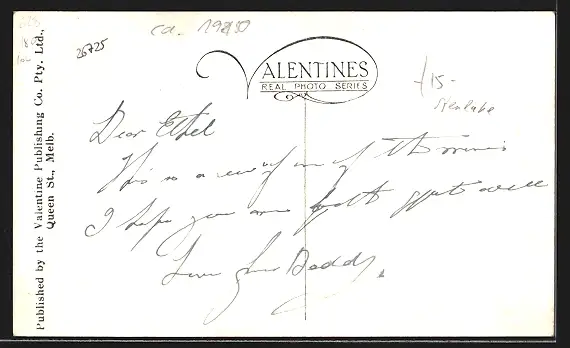 26725
VALENTINES
REAL PHOTO SERIES
Dear Ethel
This is a view of one of the mines
I hope you are both quite well
Love from Daddy.
Published by the Valentine Publishing Co. Pty. Ltd.,
Queen St., Melb.